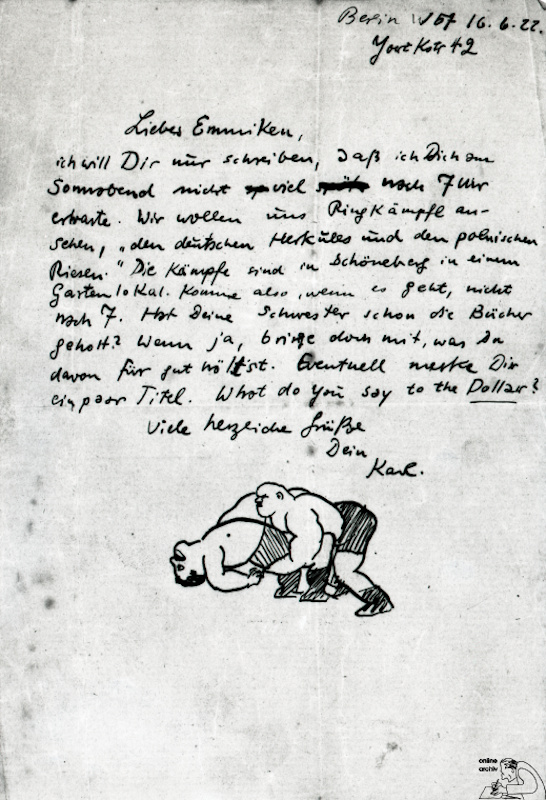 Berlin W57 16.6.22.
Yorckstr 42
Liebes Emmiken,
ich will Dir nur schreiben, daß ich Dich am
Sonnabend nicht viel nach 7 Uhr
erwarte. Wir wollen uns Ringkämpfe an-
sehen, „den deutschen Herkules und den polnischen
Riesen." Die Kämpfe sind in Schöneberg in einem
Gartenlokal. Komme also, wenn es geht, nicht
nach 7. Hat Deine Schwester schon die Bücher
geholt? Wenn ja, bringe doch mit, was Du
davon für gut hältst. Eventuell merke Dir
ein paar Titel. What do you say to the Dollar?
Viele herzliche Grüße
Dein
Karl.
online
archiv